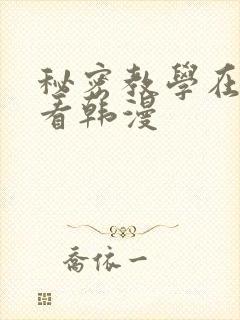 秘密教學在
看韩漫
喬依一